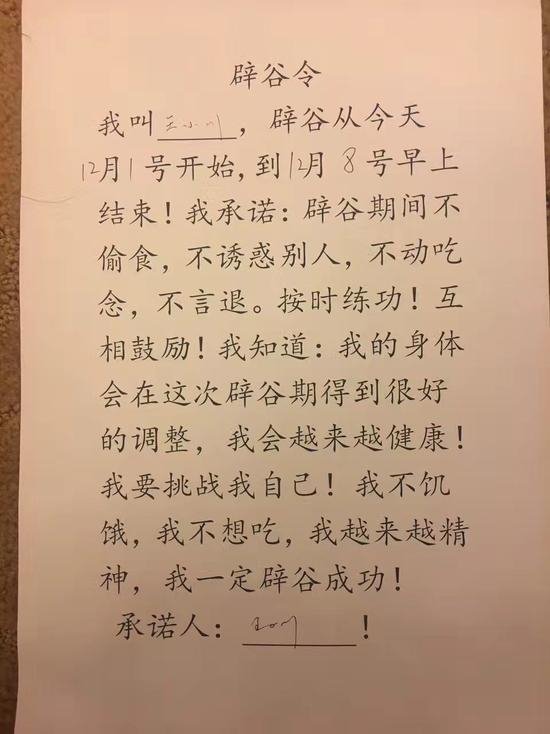 辟谷令
我叫王小川，辟谷从今天
12月1号开始，到12月8号早上
结束！我承诺：辟谷期间不
偷食，不诱惑别人，不动吃
念，不言退。按时练功！互
相鼓励！我知道：我的身体
会在这次辟谷期得到很好
的调整，我会越来越健康！
我要挑战我自己！我不饥
饿，我不想吃，我越来越精
神，我一定辟谷成功！
承诺人：王小川！